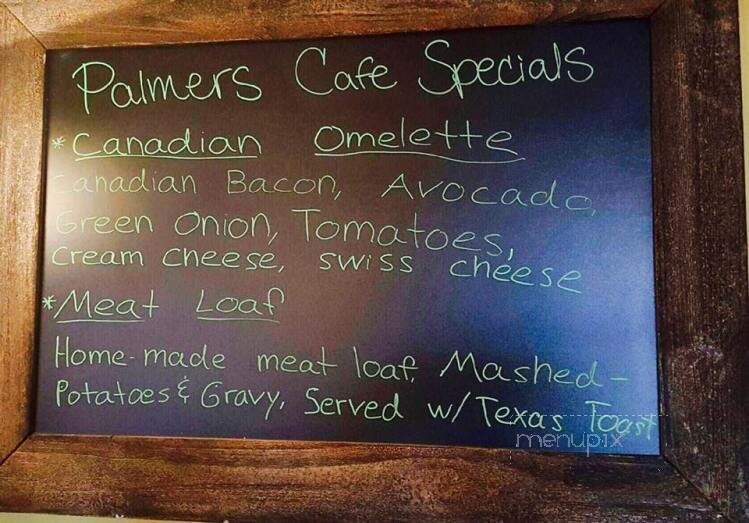 Palmers Cafe Specials
* Canadian Omelette
Canadian Bacon, Avocado,
Green Onion, Tomatoes,
Cream cheese, swiss cheese
* Meat Loaf
Home-made meat loaf, Mashed-
Potatoes & Gravy, Served w/ Texas Toast
menupix